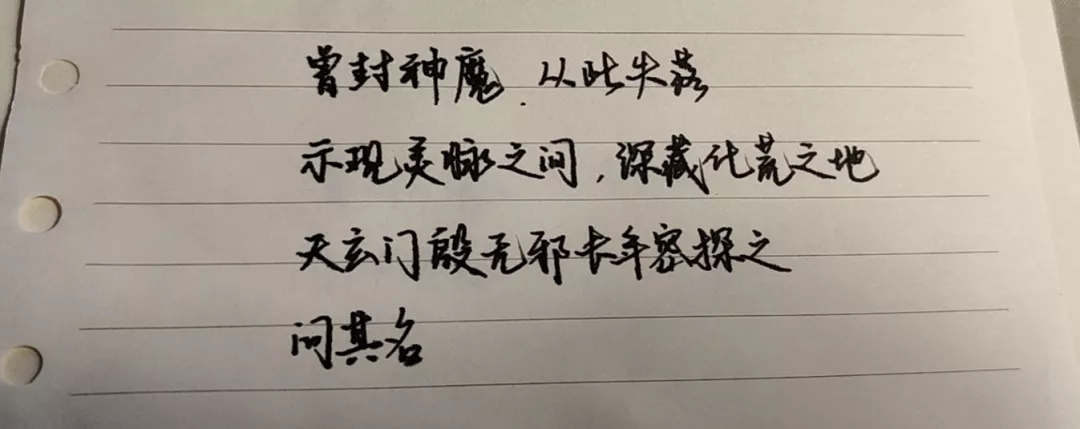 曾封神魔，从此失落
示现灵脉之间，深藏化荒之地
天玄门殷无邪长年密探之
问其名